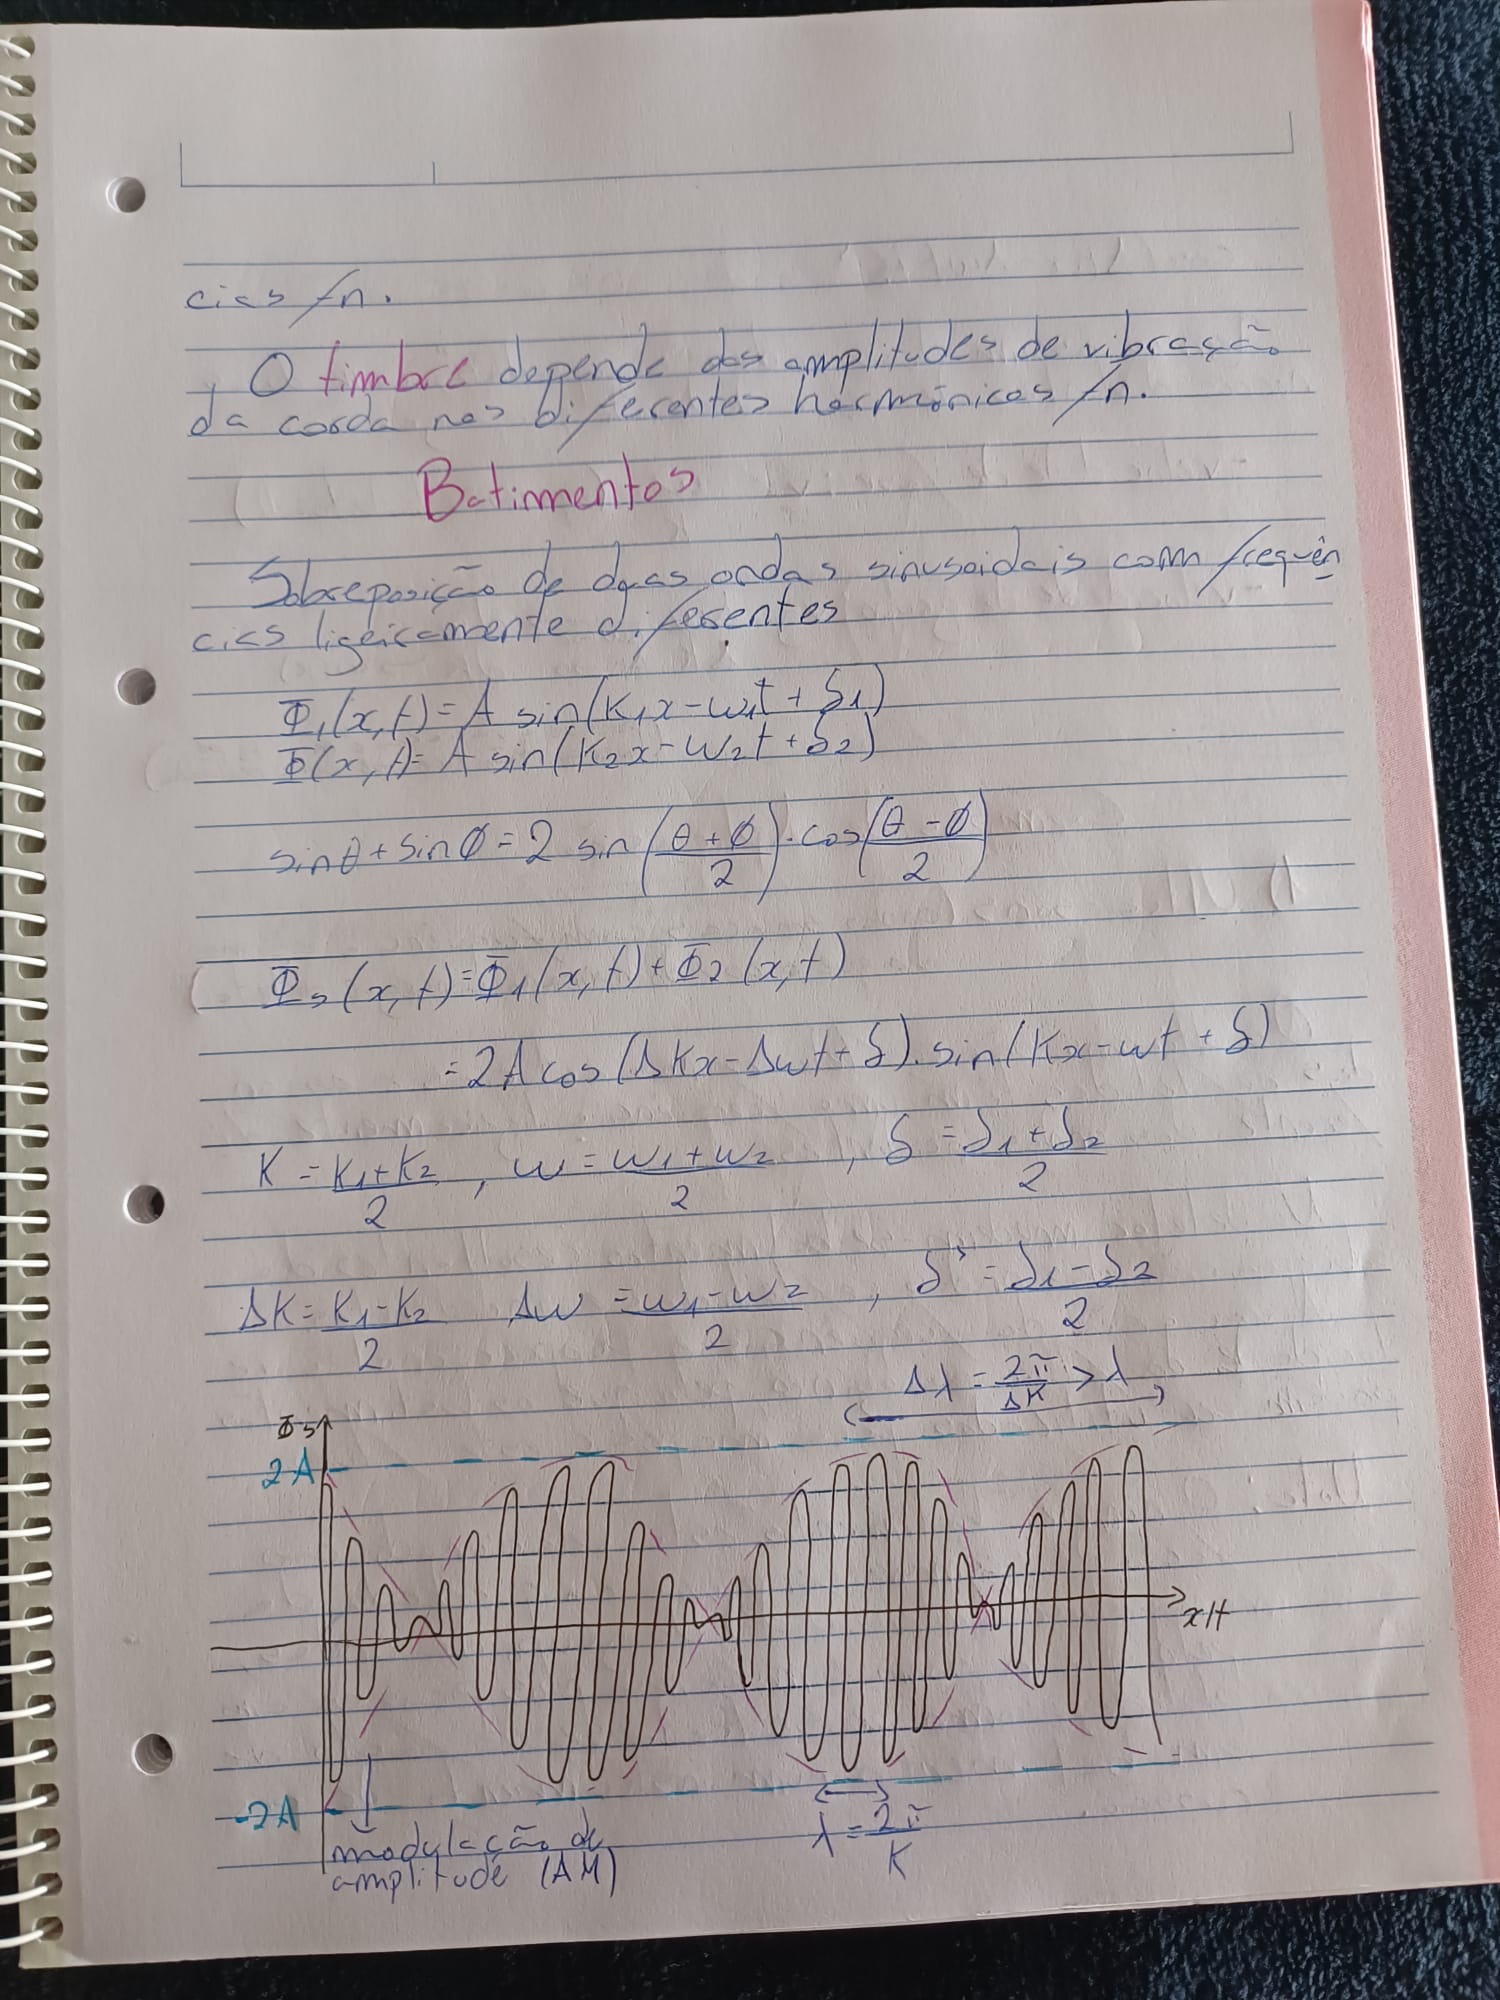 cias fn.
O timbre depende das amplitudes de vibração
da corda nos diferentes harmónicos fn.
Batimentos
Sobreposição de duas ondas sinusoidais com frequên
cias ligeiramente diferentes
Φ₁(x,t) = A sin(K₁x - w₁t + δ₁)
Φ(x,t) = A sin(K₂x - w₂t + δ₂)
sinθ + sinø = 2 sin((θ + ø)/2) · cos((θ - ø)/2)
Φs(x,t) = Φ₁(x,t) + Φ₂(x,t)
= 2A cos(ΔKx - Δwt + δ) · sin(Kx - wt + δ)
K = (K₁+K₂)/2 , w = (w₁+w₂)/2 , δ = (δ₁+δ₂)/2
ΔK = (K₁-K₂)/2 Δw = (w₁-w₂)/2 , δ' = (δ₁-δ₂)/2
Δλ = 2π/ΔK > λ
Φs
2A
x/t
-2A
modulação de
amplitude (AM)
λ = 2π/K